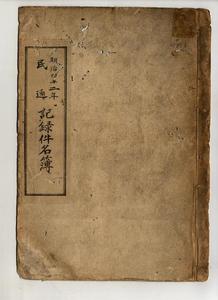 明治廿十二年
民逓
記録件名簿